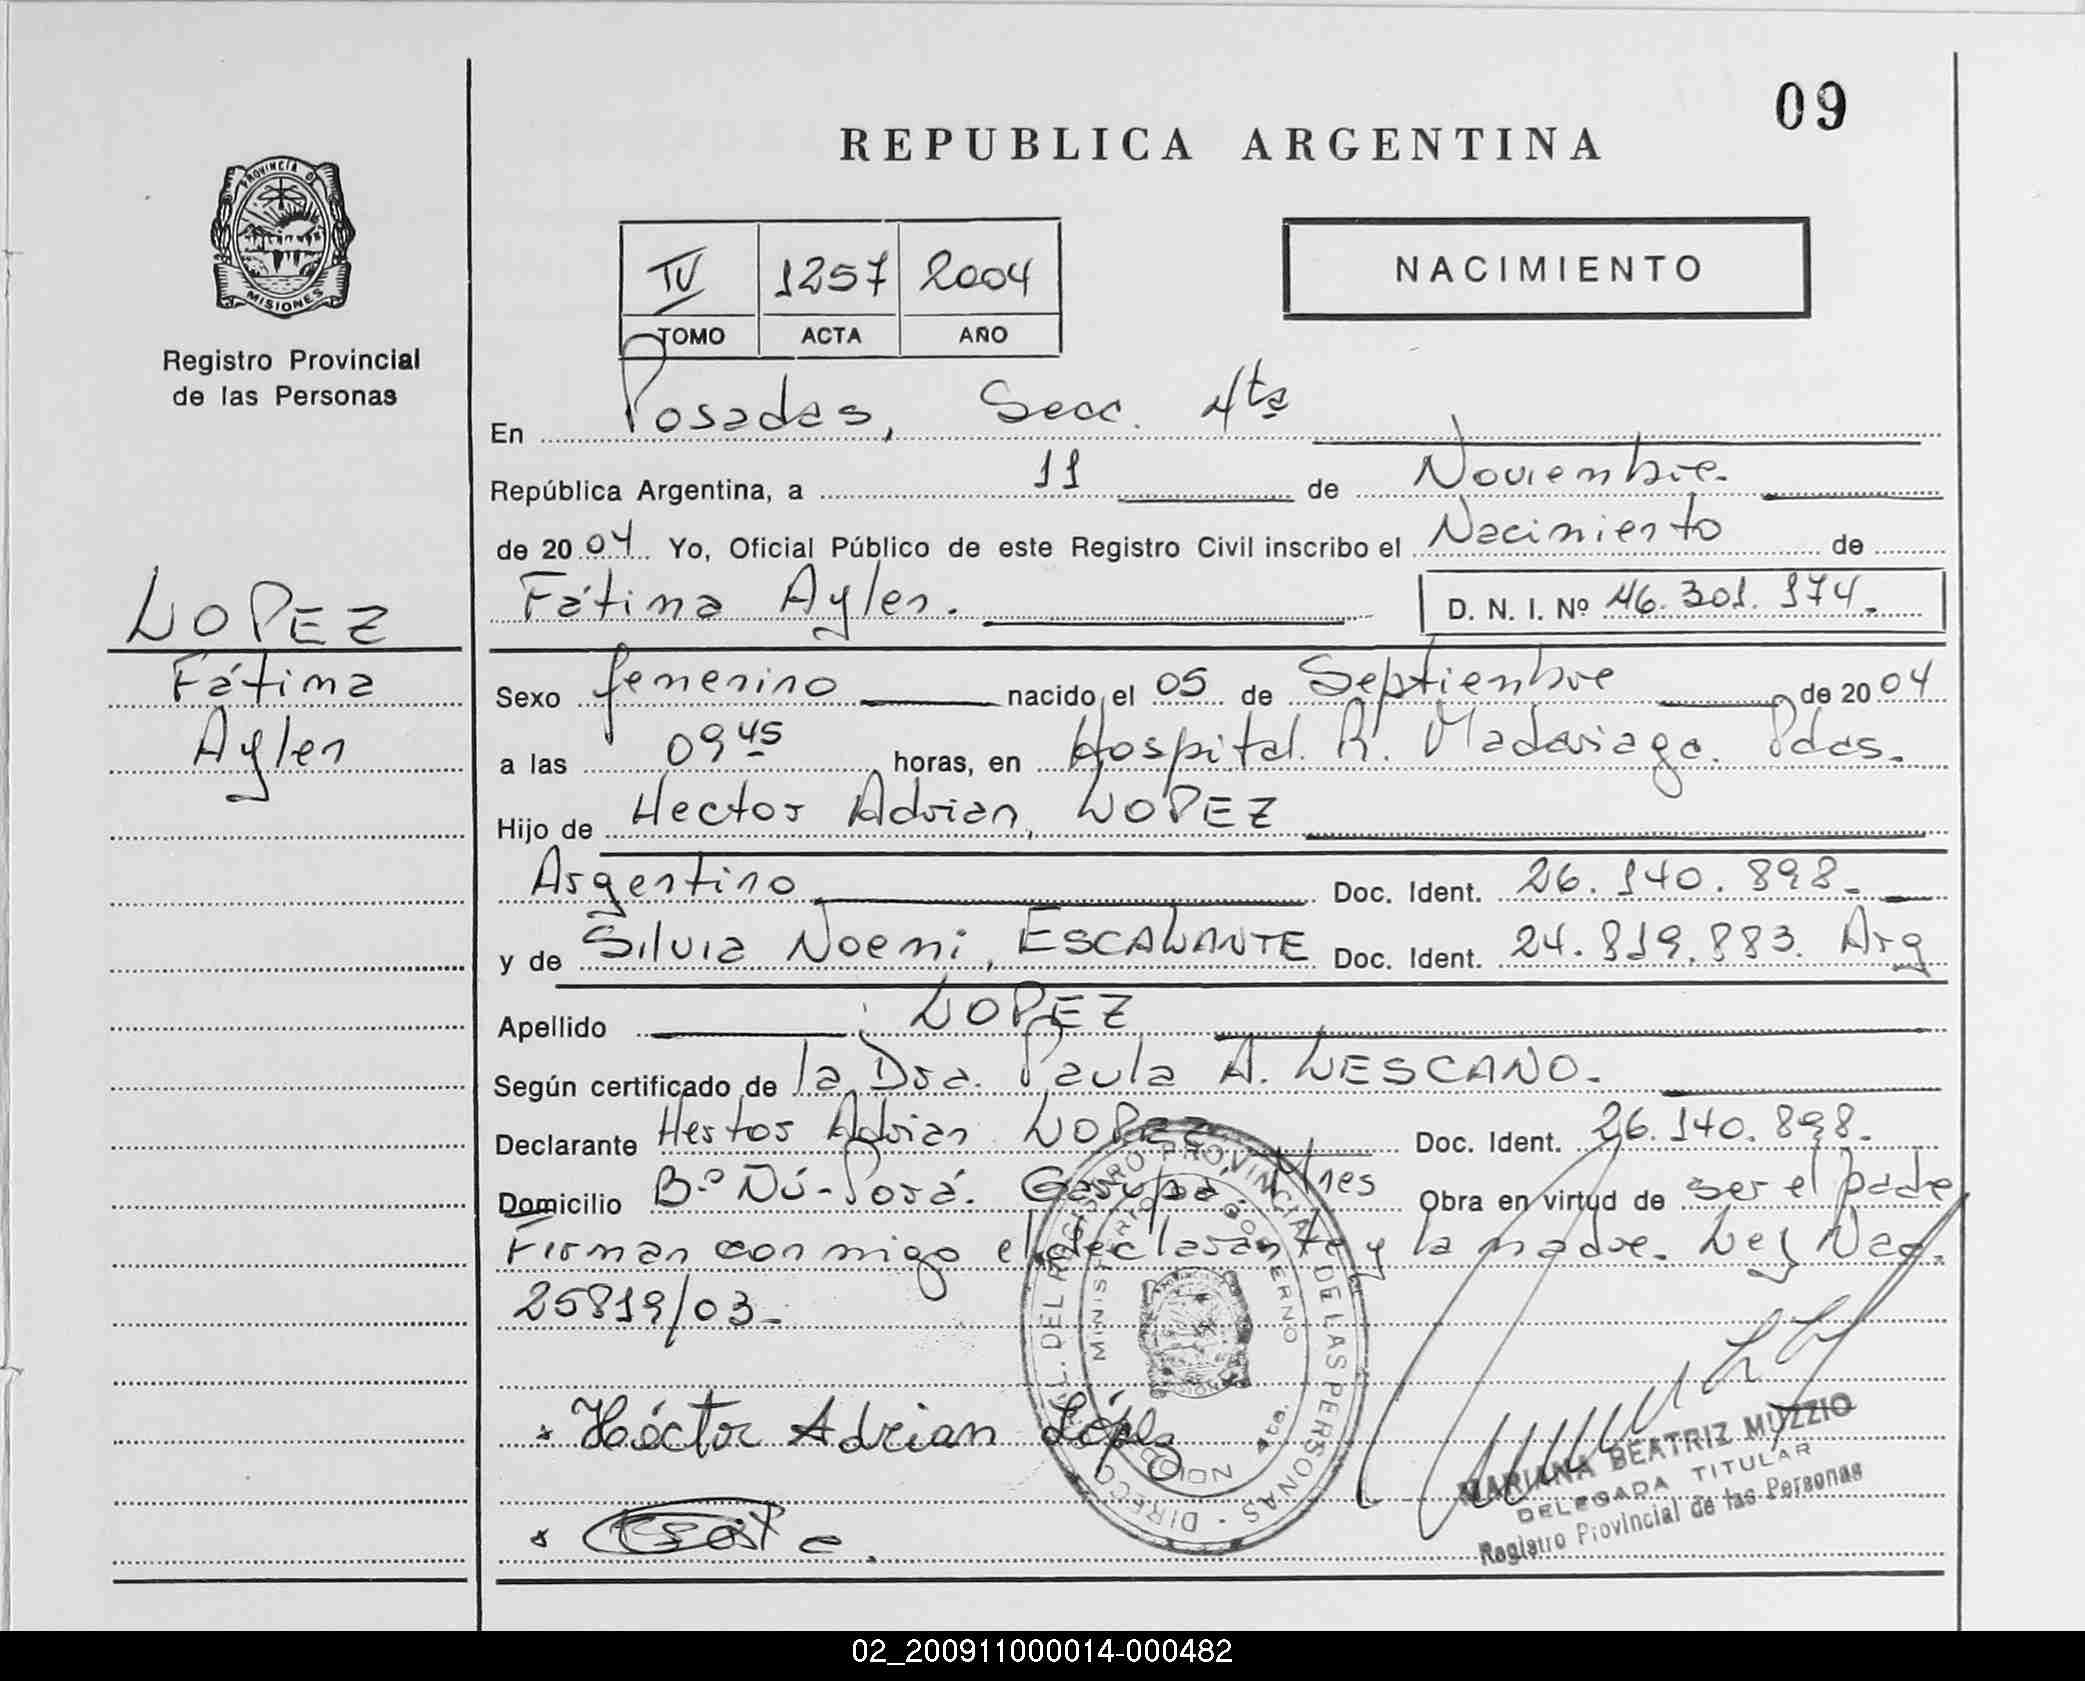 09
REPUBLICA ARGENTINA
PROVINCIA DE
MISIONES
Registro Provincial
de las Personas
IV 1257 2004
TOMO ACTA AÑO
NACIMIENTO
En Posadas, Secc. 4ta
República Argentina, a 11 de Noviembre.
de 2004 Yo, Oficial Público de este Registro Civil inscribo el Nacimiento de
Fátima Aylen. D. N. I. Nº 46.301.174.
LOPEZ
Fátima
Aylen
Sexo femenino nacido el 05 de Septiembre de 2004
a las 09 45 horas, en Hospital. R. Madariaga. Pdas.
Hijo de Hector Adrian, LOPEZ
Argentino Doc. Ident. 26.140.898.
y de Silvia Noemi, ESCALANTE Doc. Ident. 24.819.883. Arg
Apellido LOPEZ
Según certificado de la Dra. Paula A. LESCANO.
Declarante Hector Adrian LOPEZ Doc. Ident. 26.140.898.
Domicilio B.º Ñú-Porá. Garupá, Mnes Obra en virtud de ser el padre
Firman conmigo el declarante y la madre. Ley Nac.
25819/03.
Héctor Adrian López
DIRECC. GRAL. DEL REGISTRO PROVINCIAL DE LAS PERSONAS
MINISTERIO DE GOBIERNO
4ta.
MARIANA BEATRIZ MUZZIO
DELEGADA TITULAR
Registro Provincial de las Personas
02_200911000014-000482